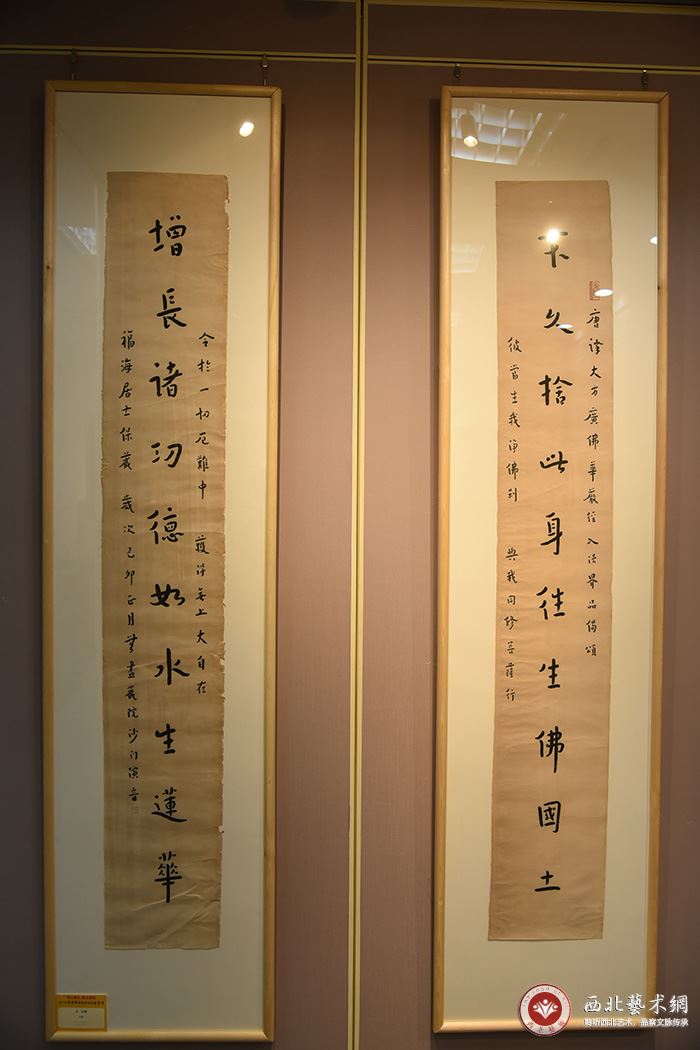 唐譯大方廣佛華嚴經入法界品偈頌
不久捨此身往生佛國土
彼當生我淨佛剎 與我同修菩薩行
令於一切厄難中 獲得無上大自在
增長諸功德如水生蓮華
福海居士保藏 歲次己卯正月無盡藏院沙門演音
西北藝術網
聆听西北艺术，品察文脉传承